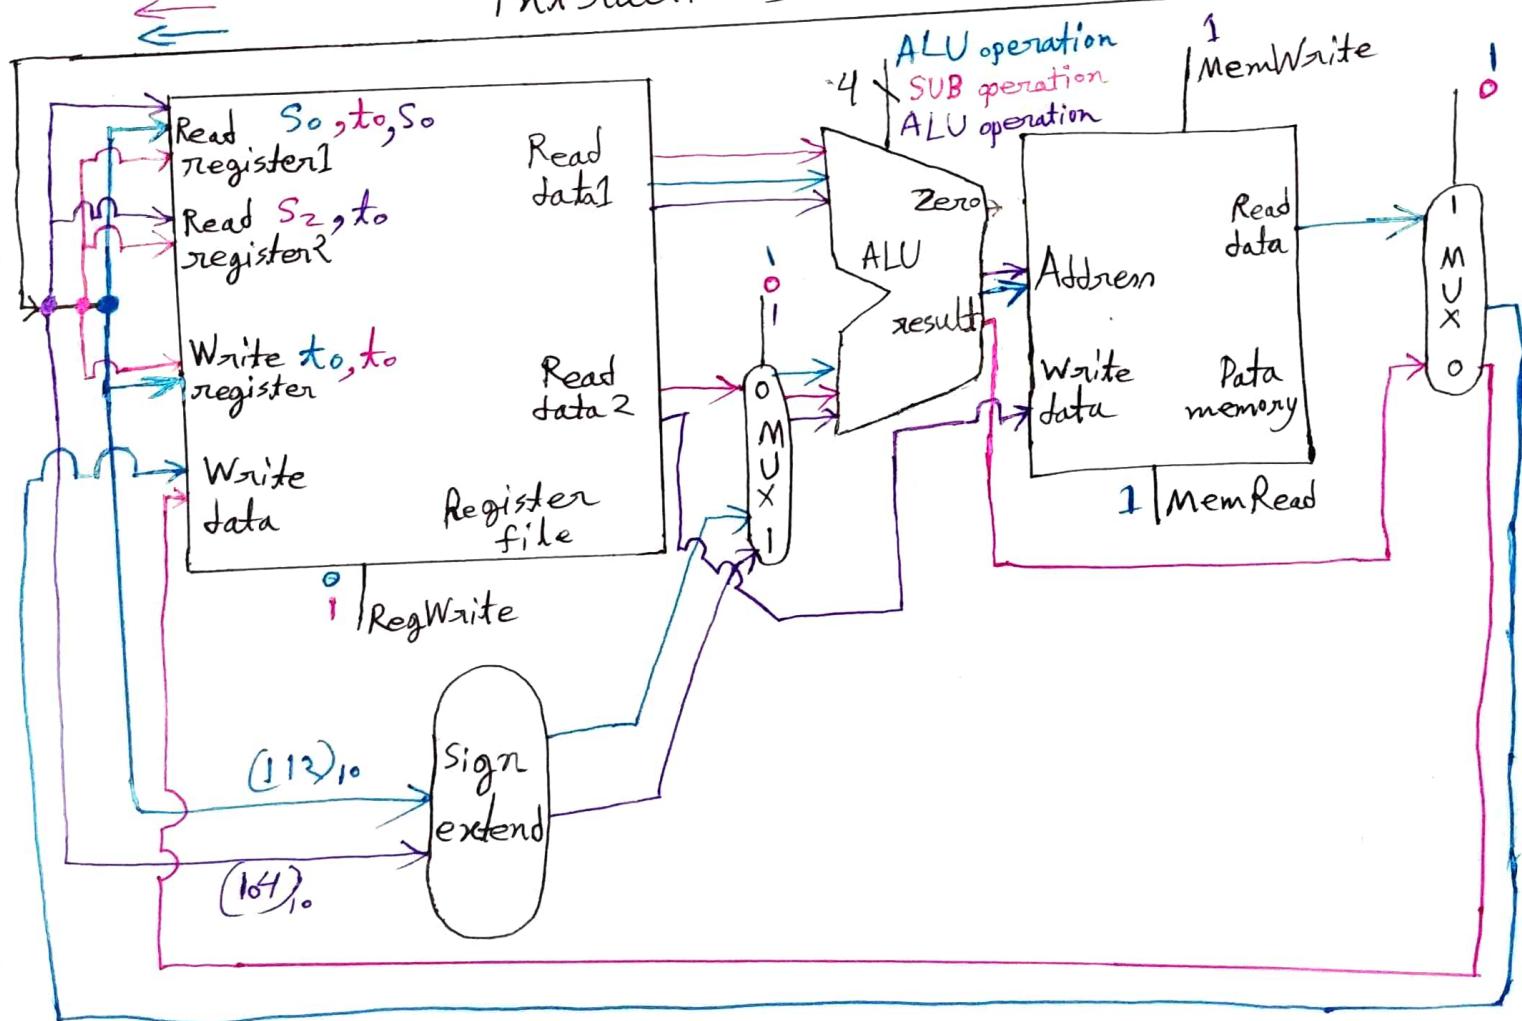 ALU operation
4 SUB operation
ALU operation
1
MemWrite
1
0
Read S0, t0, S0
register1
Read S2, t0
register2
Write t0, t0
register
Write
data
Read
data1
Read
data 2
Register
file
0
1
RegWrite
1
0
1
0
MUX
1
Zero
ALU
result
Address
Write
data
Read
data
Data
memory
1 MemRead
1
MUX
0
Sign
extend
(112)10
(104)10